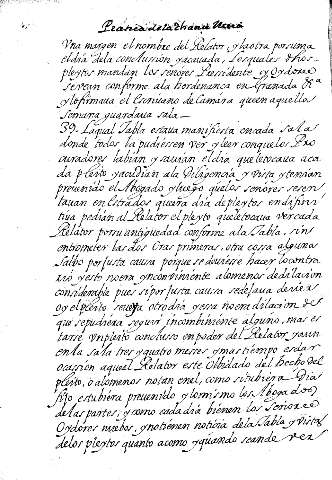 Practica de la Chanca Real
Una margen el nombre del Relator, y la otra ponsema
el dia de la conclusion y acauada, los quales dhos
pleytos mandan los señores Presidente, y Oydores
se vean conforme a la hordenansa en Granada
y lo firmaua el Escriuano de Camara que en aquella
semana guardaua sala
39. La qual Tabla estaua manifiesta en cada sala
donde todos la pudiessen ver y leer con que los Pro
curadores sabian, y sauian el dia que le tocaua a ca
da pleito y acudian a la diligencia y vista, y tenian
preuenido el Abogado y luego que los señores se sen
tauan en Estrados que era dia de pleytos en difini
tiua pedian al Relator el pleyto que le tocaua ver cada
Relator por su antiguedad conforme a la Tabla, sin
entrometer las dos oras primeras, otra cossa alguna
saluo por justa caussa porque se deuiesse hacer lo contra
rio y esto no era ynconviniente a lo menos de dilacion
considerable pues si por justa caussa se dejaua de ver
oy el pleito se otro dia y essa no era dilacion de
que se pudiera seguir incombiniente alguno, mas es
tarse un pleito conclusso en poder del Relator, y aun
en la sala tres y quatro messes y mas tiempo es dar
ocassion a que el Relator este olbidado del hecho del
pleito, o a lo menos no tan en el, como si tubiera dia
fijo estubiera preuenido y lo mismo los Abogados
de las partes, y como cada dia bienen los señores
Oydores nuebos, y no tienen noticia de la Tabla y vista
de los pleytos quanto a como y quando se an de ver